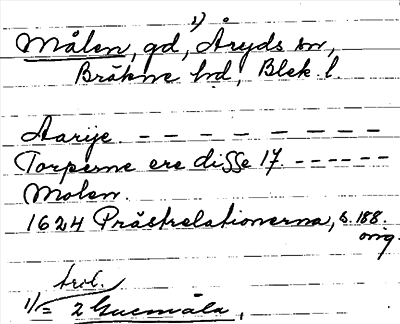 1)
Målen, gd, Åryds sn,
Bräkne hd, Blek. l.
Aarije. — — — — — — —
Torperne ere disse 17. ------
Molen.
1624 Prästrelationerna, s. 188.
orig.
trol.
1) = 2 Guemåla,